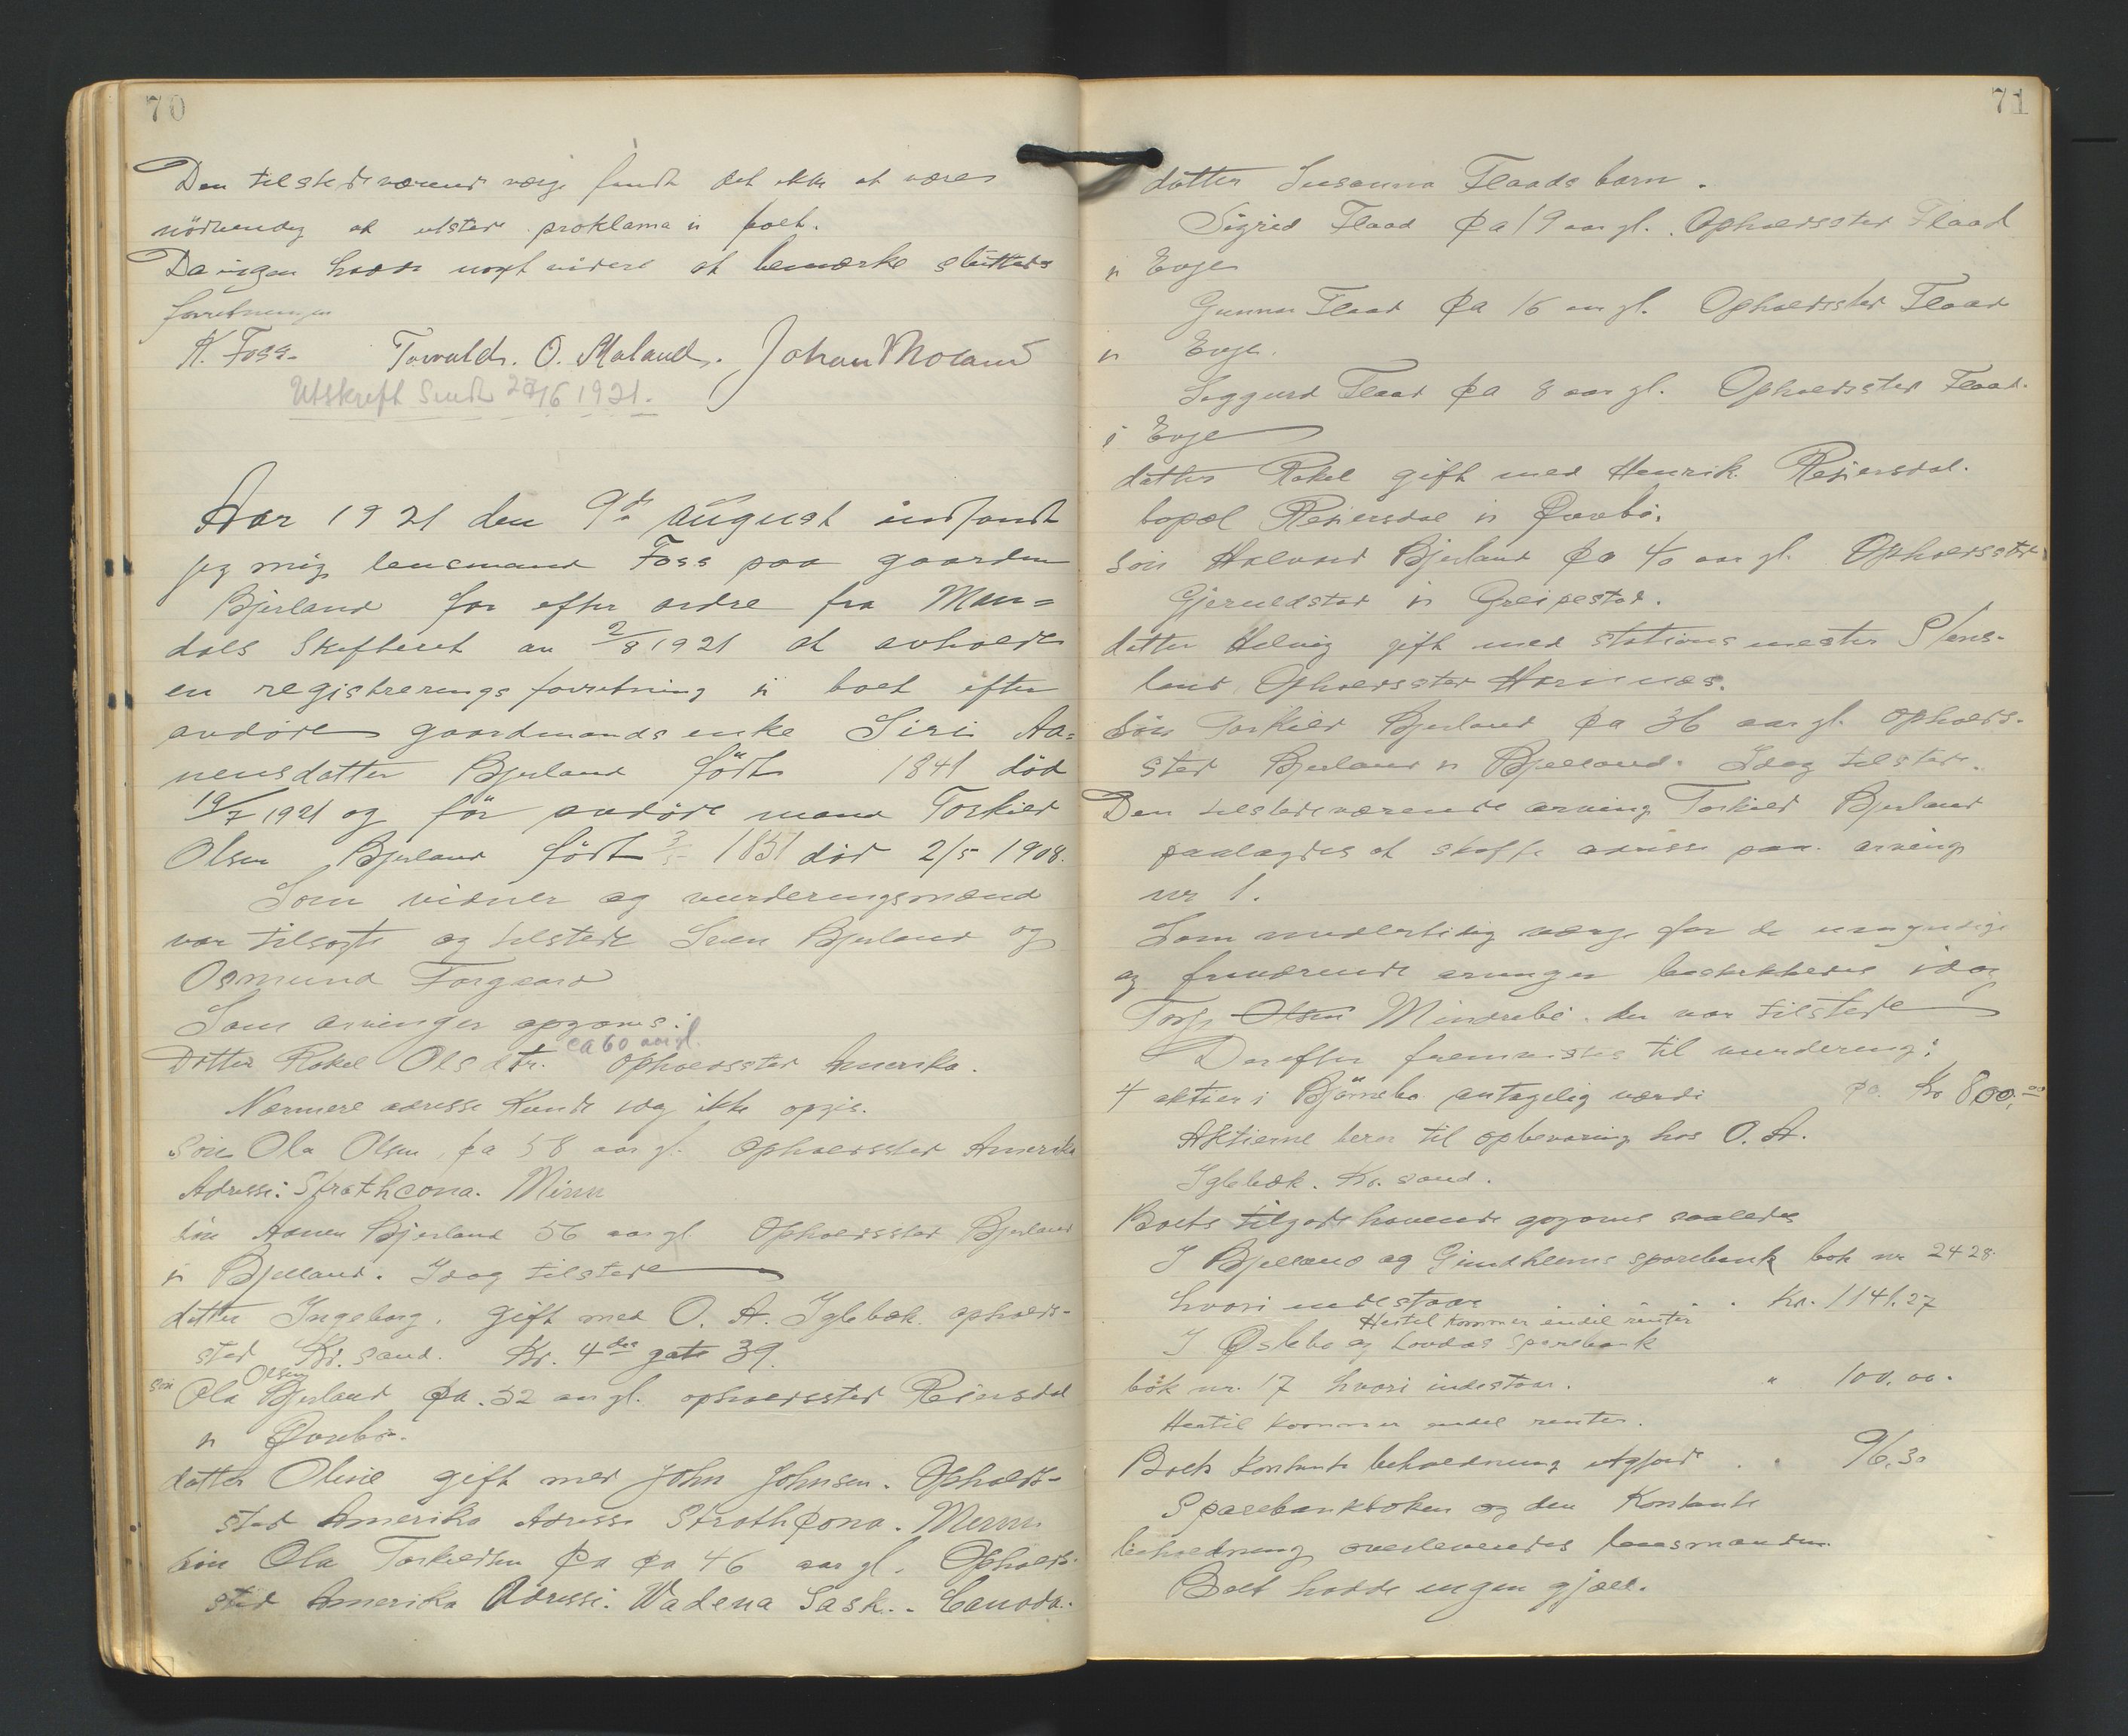 70
Den tilstedeværende værge fandt det ikke at være
nödvendig at utstede proklama i boet.
Da ingen hadde noget videre at bemærke sluttedes
forretningen
K. Foss. Torvald. O. Møland. Johan Moland
Utskrift Sendt 28/6 1921.
Aar 1921 den 9de august indfandt
jeg mig lensmand Foss paa gaarden
Bjerland for efter ordre fra Man=
dals Skifteret av 2/8 1921 at avholde
en registreringsforretning i boet efter
avdöde gaardmandsenke Siri Aa=
nensdatter Bjerland födt 1841 död
19/7 1921 og för avdöde mand Torkild
Olsen Bjerland födt 3/5 1831 död 2/5 1908.
Som vidner og vurderingsmænd
var tilsagte og tilstede Sven Bjerland og
Osmund Forgaard
Som arvinger opgaves:
ca 60 aar gl.
Datter Rakel Olsdtr. opholdssted Amerika.
Nærmere adresse kunde idag ikke opgis.
Sön Ola Olsen, ca 58 aar gl. opholdssted Amerika
Adresse: Strathcona. Minn
Sön Aanen Bjerland 56 aar gl. Opholdssted Bjerland
i Bjelland. Idag tilstede
datter Ingeborg, gift med O. A. Iglebæk. ophold-
sted Kr. sand. Kr. 4des gate 39.
Olsen
sön Ola Bjerland ca. 52 aar gl. opholdssted Reiersdal
i Øvrebö.
datter Oline gift med John Johnsen. Opholds-
sted Amerika Adresse Strathcona. Minn
Sön Ola Torkildsen ca ca 46 aar gl. Opholds-
sted Amerika Adresse: Wadena Sask. - Canada.
71
datter Susanna Flaads barn.
Sigrid Flaad ca 19 aar gl. Opholdssted Flaad
i Evje
Gunnar Flaad ca 16 aar gl. Opholdssted Flaad
i Evje.
Siggurd Flaad ca 8 aar gl. Opholdssted Flaad.
i Evje
datter Rakel gift med Henrik Reiersdal.
bopæl Reiersdal i Øvrebö.
Sön Halvard Bjerland ca 40 aar gl. Opholdssted
Gjervldstad i Greipestad.
datter Helvig gift med stationsmester Stens-
land, Opholdssted Hornnæs.
Sön Torkild Bjerland ca 36 aar gl. opholds-
sted Bjerland i Bjelland. Idag tilstede.
Den tilstedeværende arving Torkild Bjerland
paalagdes at skaffe adresse paa arving
nr 1.
Som midlertidig værge for de umyndige
og fraværende arvinger beskikkedes idag
Torj Olsen Mindrebö. der var tilstede
Derefter fremvistes til vurdering:
4 aktier i Björnebo antagelig værdi ca. Kr 800.00
Aktierne beror til opbevaring hos O. A.
Iglebæk. Kr. sand.
Boets tilgodehavende opgaves saaledes
I Bjelland og Grindheims sparebank bok nr 2428
hvori indestaar Kr. 1141.27
Hertil kommer endel renter
I Øslebö og Lavdal sparebank
bok nr. 17 hvori indestaar. " 100.00.
Hertil kommer endel renter.
Boets kontante beholdning utgjorde . . 96.30
Sparebankboken og den kontante
beholdning overlevertes lensmanden.
Boet hadde ingen gjæld.